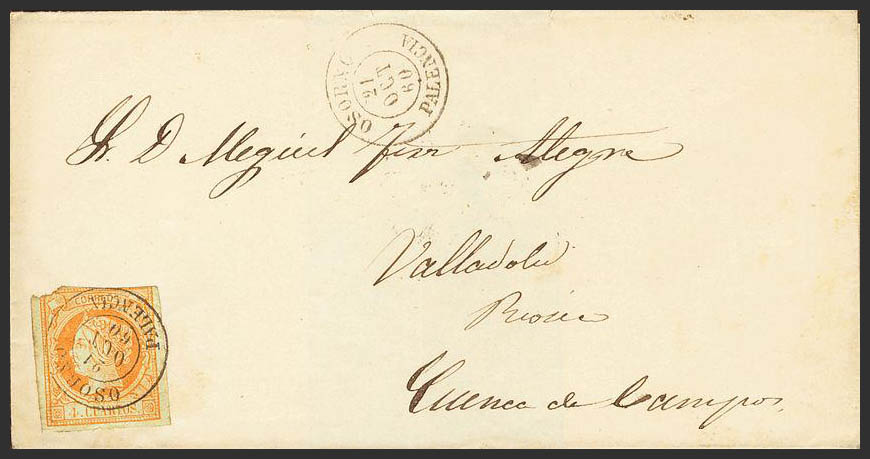 OSORNO PALENCIA
21
OCT
60
Sr. D Miguel Alegre
Valladolid
Cuenca de Campos
OSORNO PALENCIA
21
OCT
60
4 CUARTOS